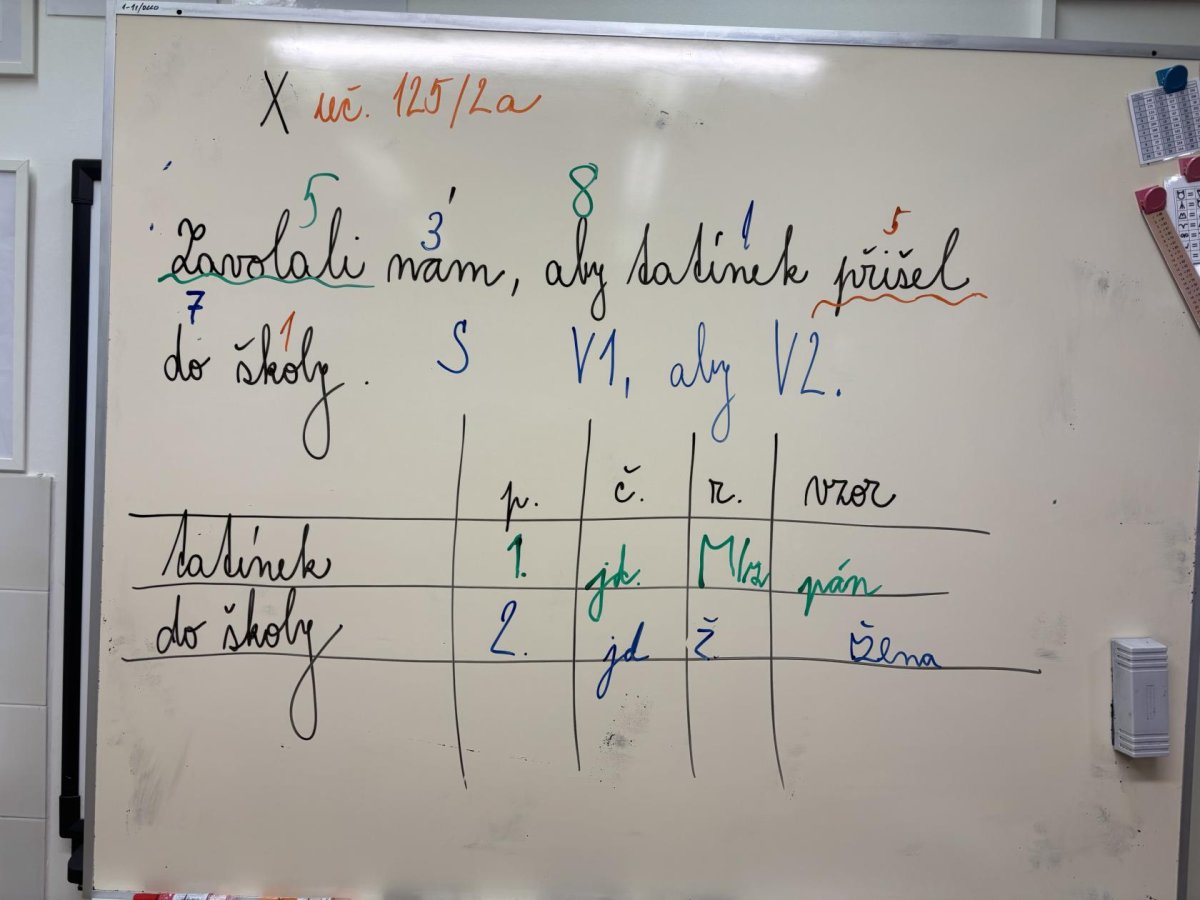 X uč. 125/2a
5 3 8 1 5
Zavolali nám, aby tatínek přišel
7 1
do školy. S V1, aby V2.
p. č. r. vzor
tatínek 1. jd. M/ž pán
do školy 2. jd ž. žena